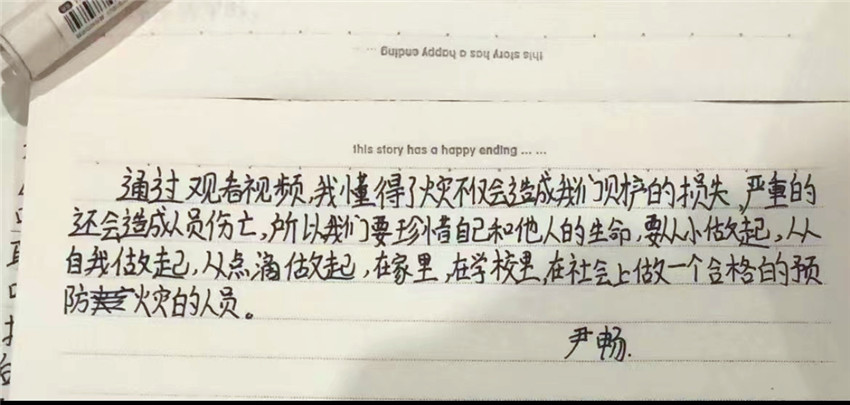 this story has a happy ending ... ...
this story has a happy ending ... ...
通过观看视频,我懂得了火灾不仅会造成我们财产的损失,严重的
还会造成人员伤亡,所以我们要珍惜自己和他人的生命,要从小做起,从
自我做起,从点滴做起,在家里,在学校里,在社会上做一个合格的预
防火灾的人员。
尹畅.